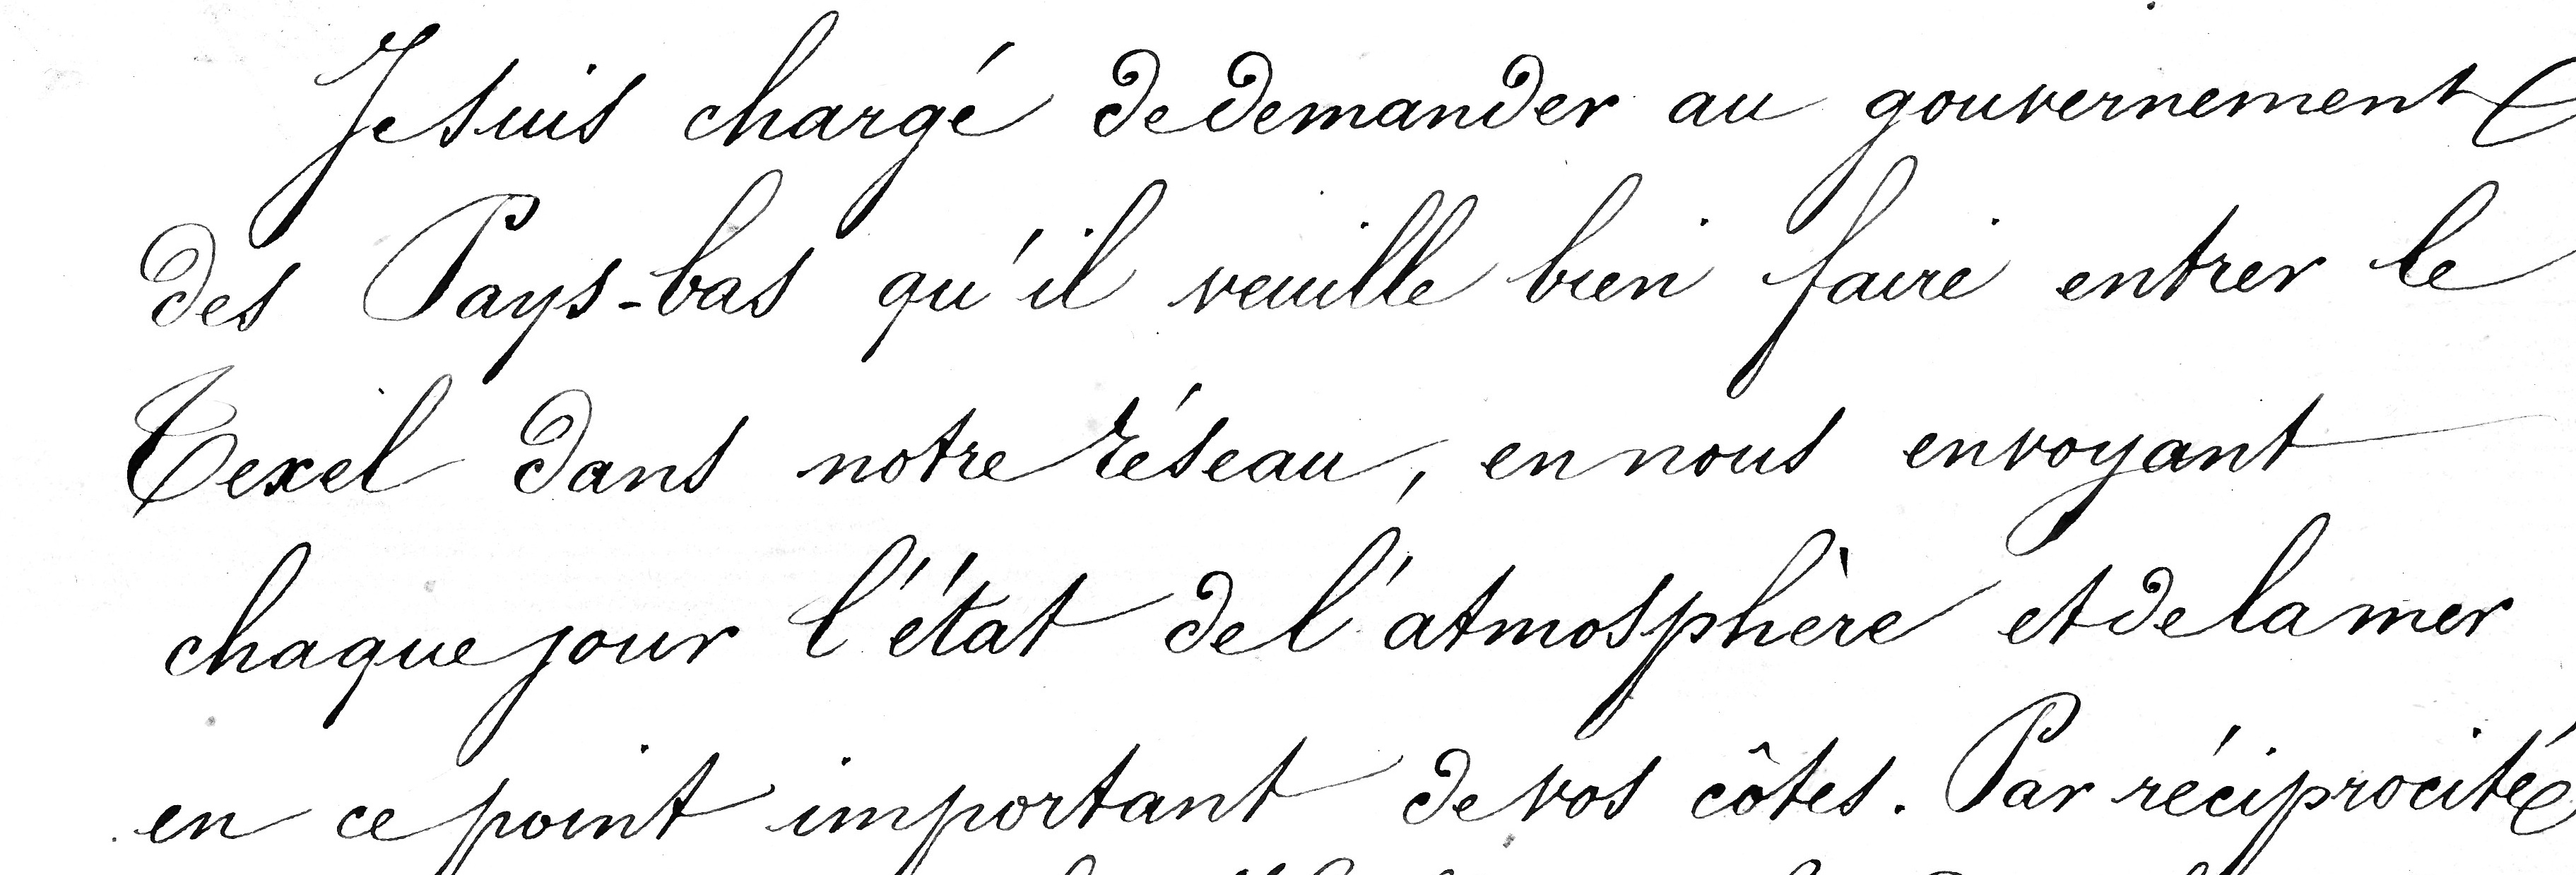 Je suis chargé de demander au gouvernement
des Pays-bas qu'il veuille bien faire entrer le
Texel dans notre réseau, en nous envoyant
chaque jour l'état de l'atmosphère et de la mer
en ce point important de vos côtes. Par réciprocité